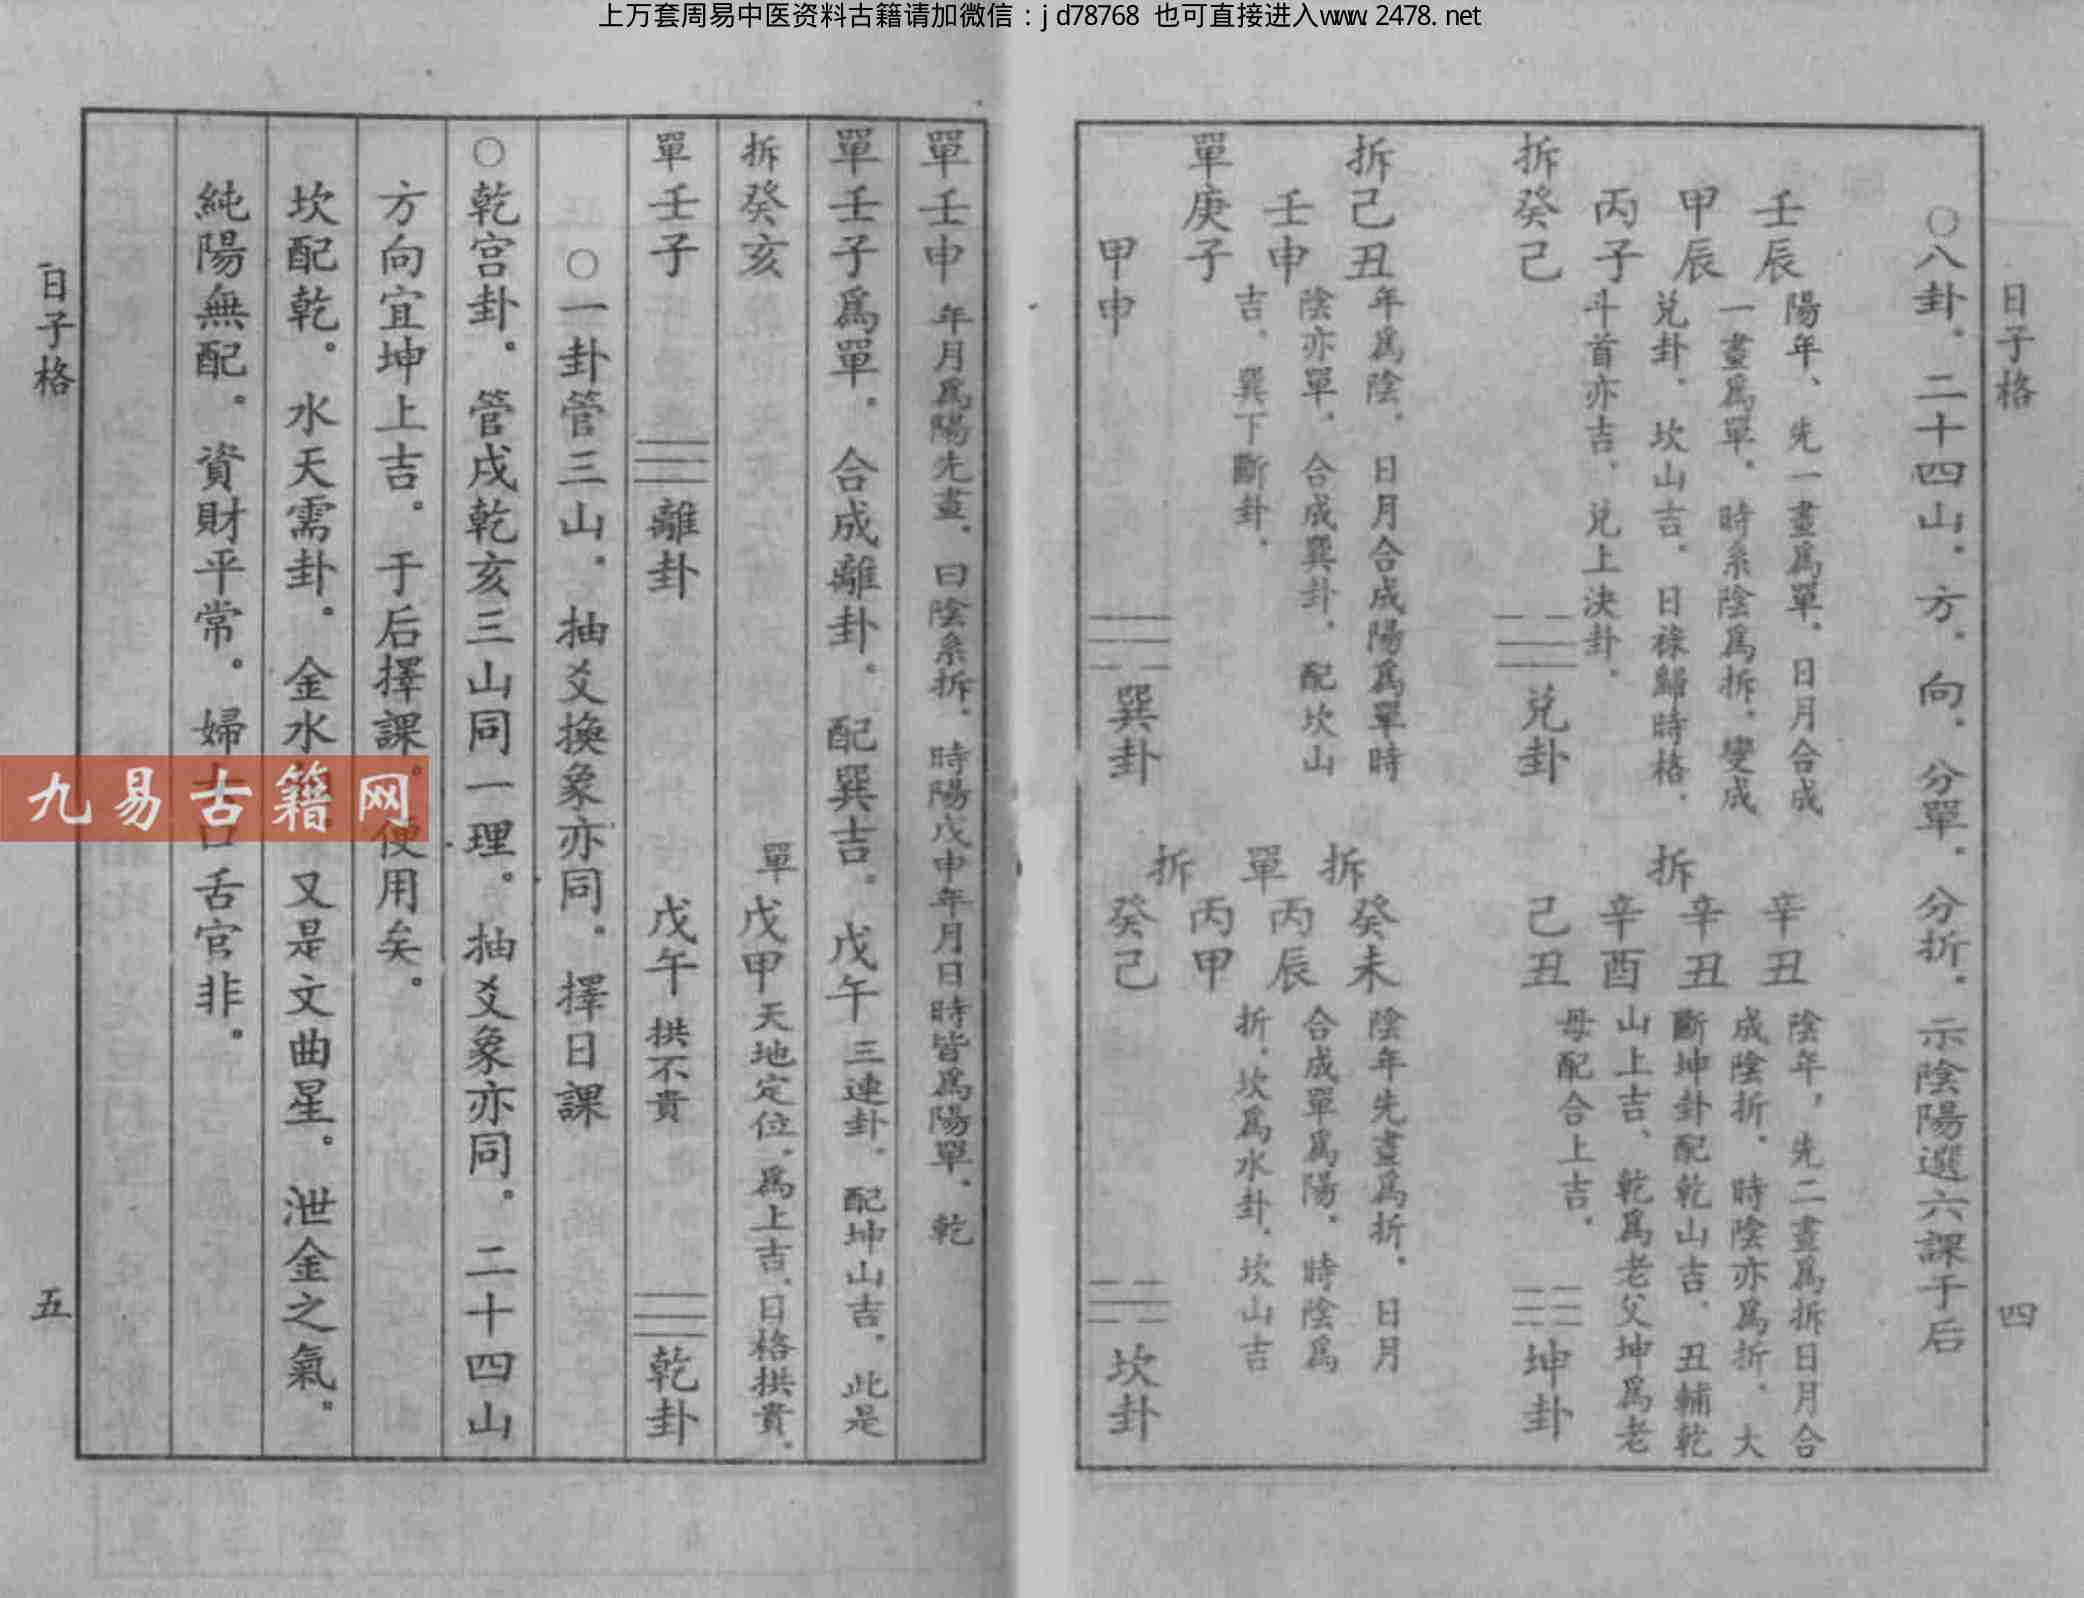 上万套周易中医资料古籍请加微信：jd78768 也可直接进入www.2478.net
日子格 四
○八卦．二十四山．方．向．分單．分折．示陰陽選六課于后
壬辰
甲辰
丙子
拆癸己
陽年、先一畫爲單．日月合成
一畫爲單．時系陰爲拆．變成
兑卦．坎山吉．日祿歸時格．
斗首亦吉．兑上決卦．
☱兑卦
辛丑
拆辛丑
辛酉
己丑
陰年，先二畫爲拆日月合
成陰折．時陰亦爲折．大
斷坤卦配乾山吉．丑輔乾
山上吉、乾爲老父坤爲老
母配合上吉．
☷坤卦
拆己丑
壬申
單庚子
甲申
年爲陰．日月合成陽爲單時
陰亦單．合成巽卦．配坎山
吉．巽下斷卦．
☴巽卦
拆癸未
單丙辰
拆丙甲
癸己
陰年先畫爲折．日月
合成單爲陽．時陰爲
折．坎爲水卦．坎山吉
☵坎卦
單壬申 年月爲陽先畫．曰陰系拆．時陽戊申年月日時皆爲陽單．乾
單壬子爲單．合成離卦．配巽吉．戊午 三連卦．配坤山吉．此是
拆癸亥 單戊甲 天地定位．爲上吉．日格拱貴．
單壬子 ☲離卦 戊午 拱不貴 ☰乾卦
○一卦管三山．抽爻換象亦同．擇日課
○乾宫卦．管戌乾亥三山同一理．抽爻象亦同．二十四山
方向宜坤上吉．于后擇課．便用矣．
坎配乾．水天需卦．金水 又是文曲星．泄金之氣．
純陽無配．資財平常．婦 口舌官非．
日子格 五
九易古籍网